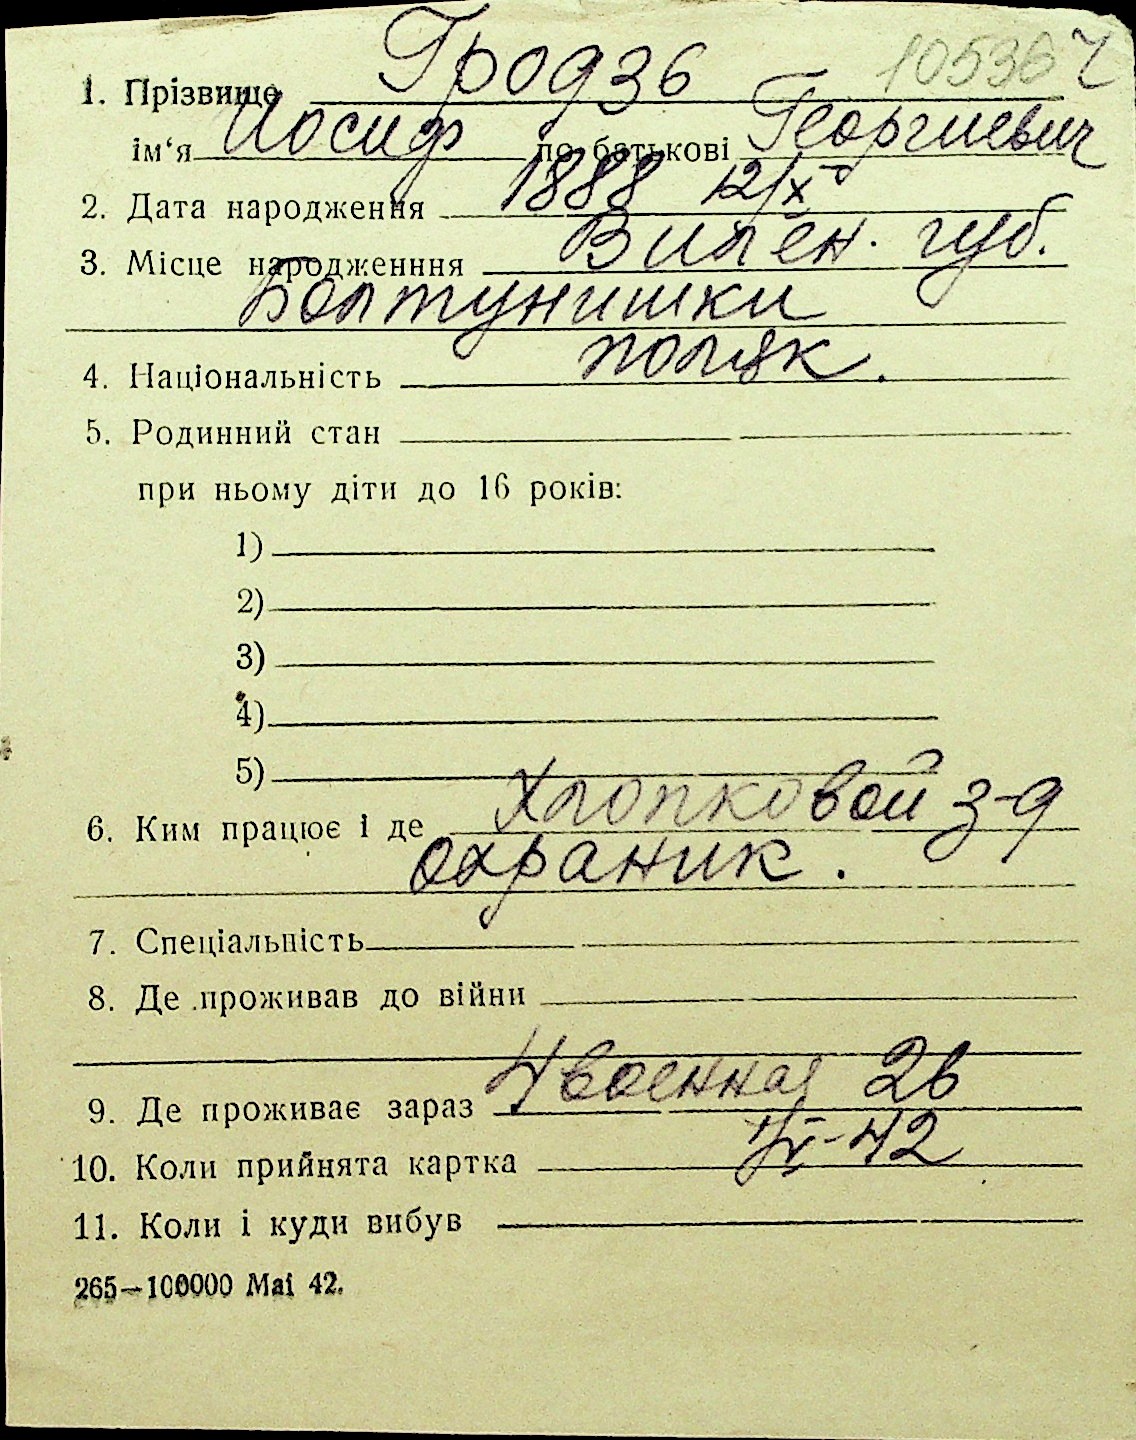 1. Прізвище Гродзь 10536 Ч
ім‘я Иосиф по батькові Георгиевич
2. Дата народження 1888 12/X
3. Місце народженння Вилен. губ.
Болтунишки
4. Національність поляк.
5. Родинний стан
при ньому діти до 16 років:
1)
2)
3)
4)
5)
6. Ким працює і де Хлопковой з-д
охраник.
7. Спеціальність
8. Де проживав до війни
9. Де проживає зараз 4 военная 2в
10. Коли прийнята картка -42
11. Коли і куди вибув
265—100000 Mai 42.